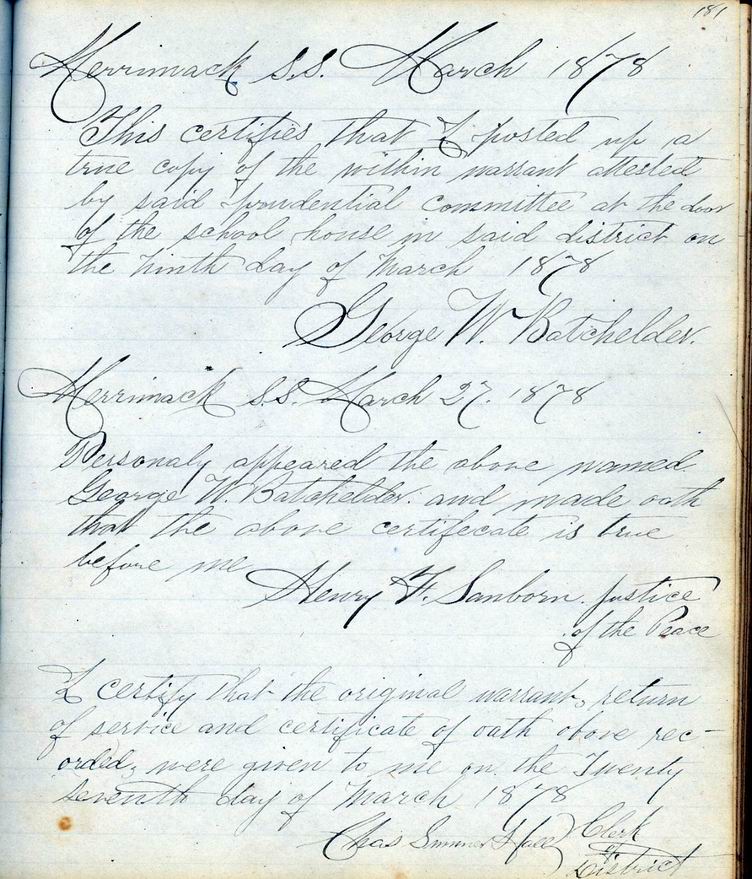 181
Merrimack S.S. March 1878
This certifies that I posted up a
true copy of the within warrant attested
by said Prudential committee at the door
of the school house in said district on
the ninth day of March 1878
George W. Batchelder.
Merrimack S.S. March 27. 1878
Personaly appeared the above named
George W. Batchelder. and made oath
that the above certifecate is true
before me
Henry F. Sanborn. Justice
of the Peace
I certify that the original warrant, return
of service and certificate of oath above rec-
orded, were given to me on the Twenty
seventh day of March 1878
Chas Sumner Hall Clerk
of
District